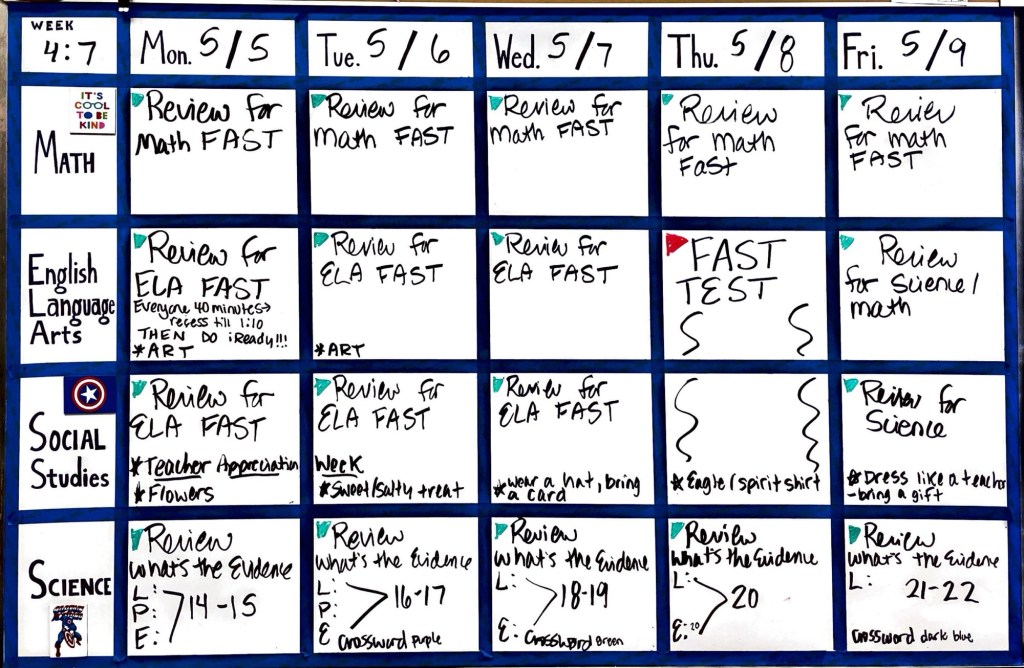 WEEK
4:7
Mon. 5/5
Tue. 5/6
Wed. 5/7
Thu. 5/8
Fri. 5/9
IT'S
COOL
TO BE
KIND
MATH
Review for
Math FAST
Review for
math FAST
Review for
Math FAST
Review
for Math
Fast
Review
for math
FAST
English
Language
Arts
Review for
ELA FAST
Everyone 40 minutes→
recess till 1:10
THEN DO iReady!!!
*ART
Review for
ELA FAST
*ART
Review for
ELA FAST
FAST
TEST
Review
for Science/
math
SOCIAL
Studies
Review for
ELA FAST
*Teacher Appreciation
*Flowers
Review for
ELA FAST
Week
*Sweet/salty treat
Review for
ELA FAST
*wear a hat, bring
a card
*Eagle/spirit shirt
Review for
Science
*Dress like a teacher
-bring a gift
SCIENCE
Review
What's the Evidence
L:
P: 14-15
E:
Review
What's the Evidence
L:
P: 16-17
E Crossword Purple
Review
What's the Evidence
L: 18-19
E: Crossword Green
Review
What's the Evidence
L: 20
E: 20
Review
What's the Evidence
L: 21-22
Crossword dark blue